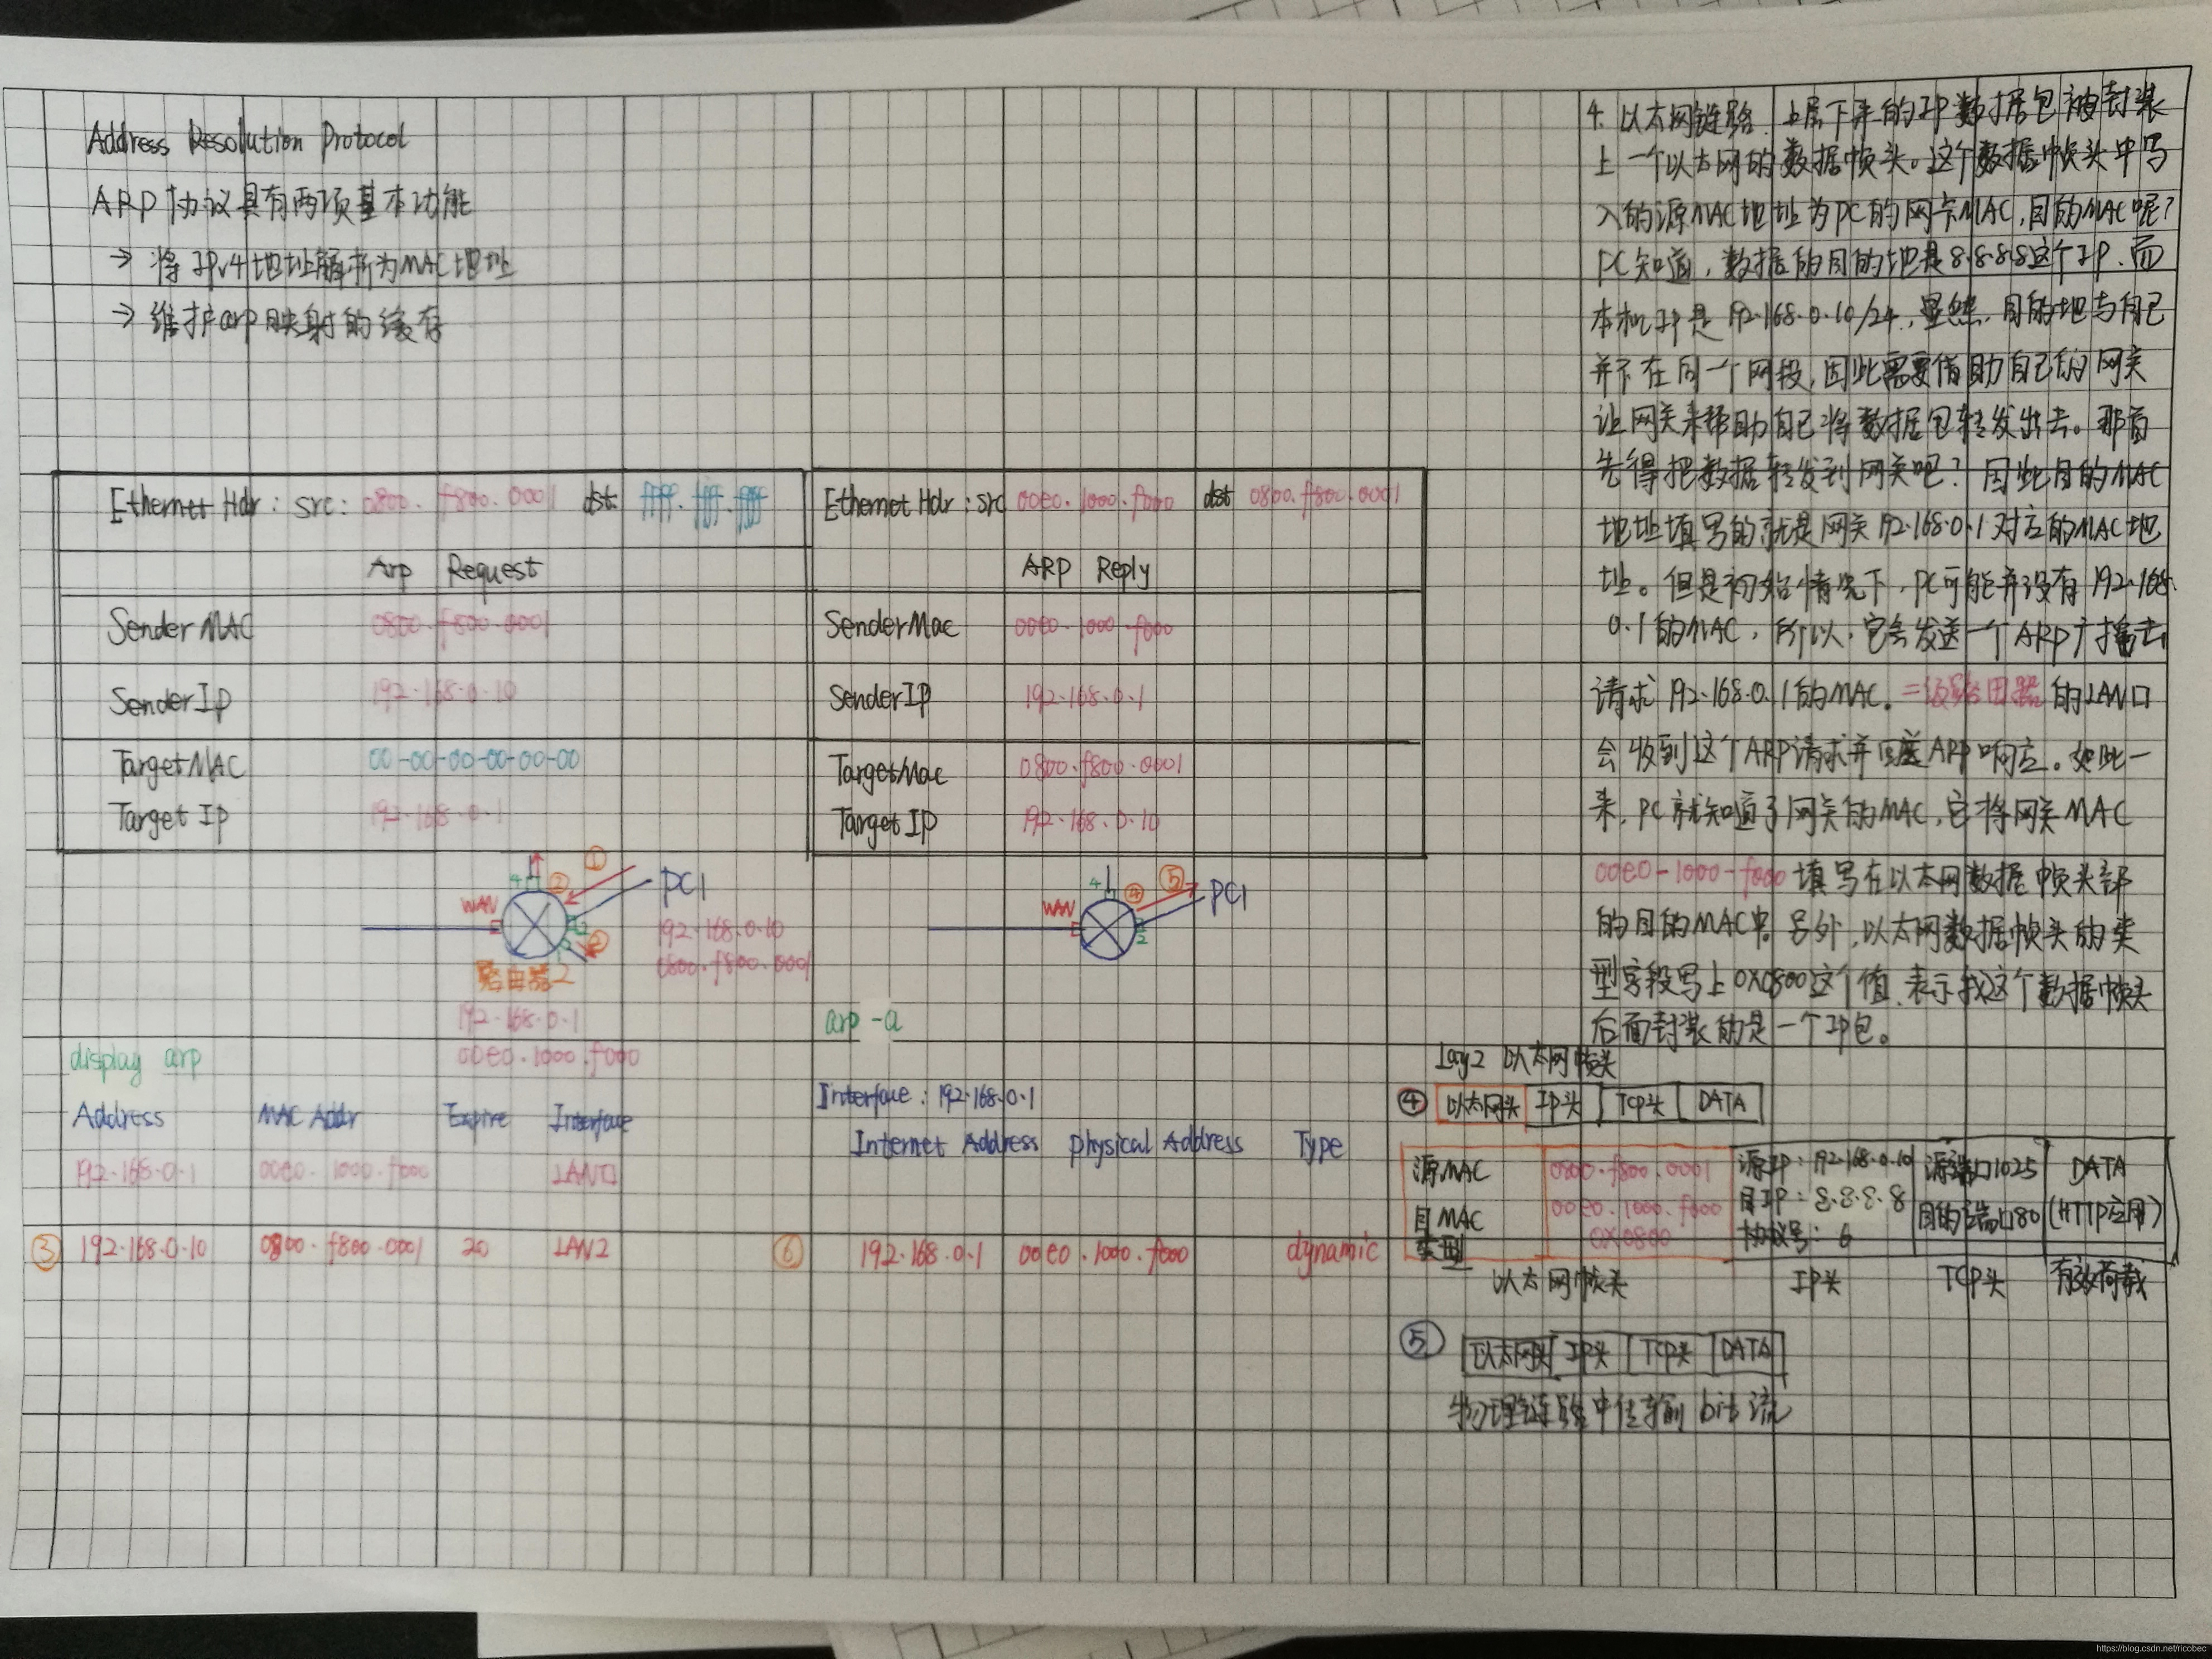 Address Resolution Protocol
ARP协议具有两项基本功能
→ 将IPv4地址解析为MAC地址
→ 维护arp映射的缓存
Ethernet Hdr: src: 0800.f800.0001 dst: ffff.ffff.ffff
Arp Request
Sender MAC 0800.f800.0001
Sender Ip 192.168.0.10
Target MAC 00-00-00-00-00-00
Target Ip 192.168.0.1
Ethernet Hdr: src 00e0.1000.f000 dst 0800.f800.0001
ARP Reply
Sender Mac 00e0.1000.f000
Sender IP 192.168.0.1
Target Mac 0800.f800.0001
Target IP 192.168.0.10
4 ② ①
WAN PC1
2
②
192.168.0.10
0800.f800.0001
路由器2
192.168.0.1
00e0.1000.f000
4 ④ ⑤
WAN PC1
2
display arp
Address MAC Addr Expire Interface
192.168.0.1 00e0.1000.f000 LAN口
③ 192.168.0.10 0800.f800.0001 20 LAN2
arp -a
Interface: 192.168.0.1
Internet Address Physical Address Type
⑥ 192.168.0.1 00e0.1000.f000 dynamic
4. 以太网链路. 上层下来的IP数据包被封装
上一个以太网的数据帧头。这个数据帧头中写
入的源MAC地址为PC的网卡MAC,目的MAC呢?
PC知道,数据的目的地是8.8.8.8这个IP,而
本机IP是192.168.0.10/24,显然,目的地与自己
并不在同一个网段,因此需要借助自己的网关
让网关来帮助自己将数据包转发出去。那首
先得把数据转发到网关吧?因此目的MAC
地址填写的就是网关192.168.0.1对应的MAC地
址。但是初始情况下,PC可能并没有192.168.
0.1的MAC,所以,它会发送一个ARP广播去
请求192.168.0.1的MAC。二级路由器的LAN口
会收到这个ARP请求并回送ARP响应。如此一
来,PC就知道了网关的MAC,它将网关MAC
00e0-1000-f000填写在以太网数据帧头部
的目的MAC中。另外,以太网数据帧头的类
型字段写上0X0800这个值,表示我这个数据帧头
后面封装的是一个IP包。
Lay2 以太网帧头
④ 以太网头 IP头 TCP头 DATA
源MAC 0800.f800.0001 源IP:192.168.0.10 源端口1025 DATA
目MAC 00e0.1000.f000 目IP:8.8.8.8 目的端口80 (HTTP应用)
类型 0X0800 协议号:6
以太网帧头 IP头 TCP头 有效荷载
⑤ 以太网头 IP头 TCP头 DATA
物理链路中传输bit流
https://blog.csdn.net/ricobec